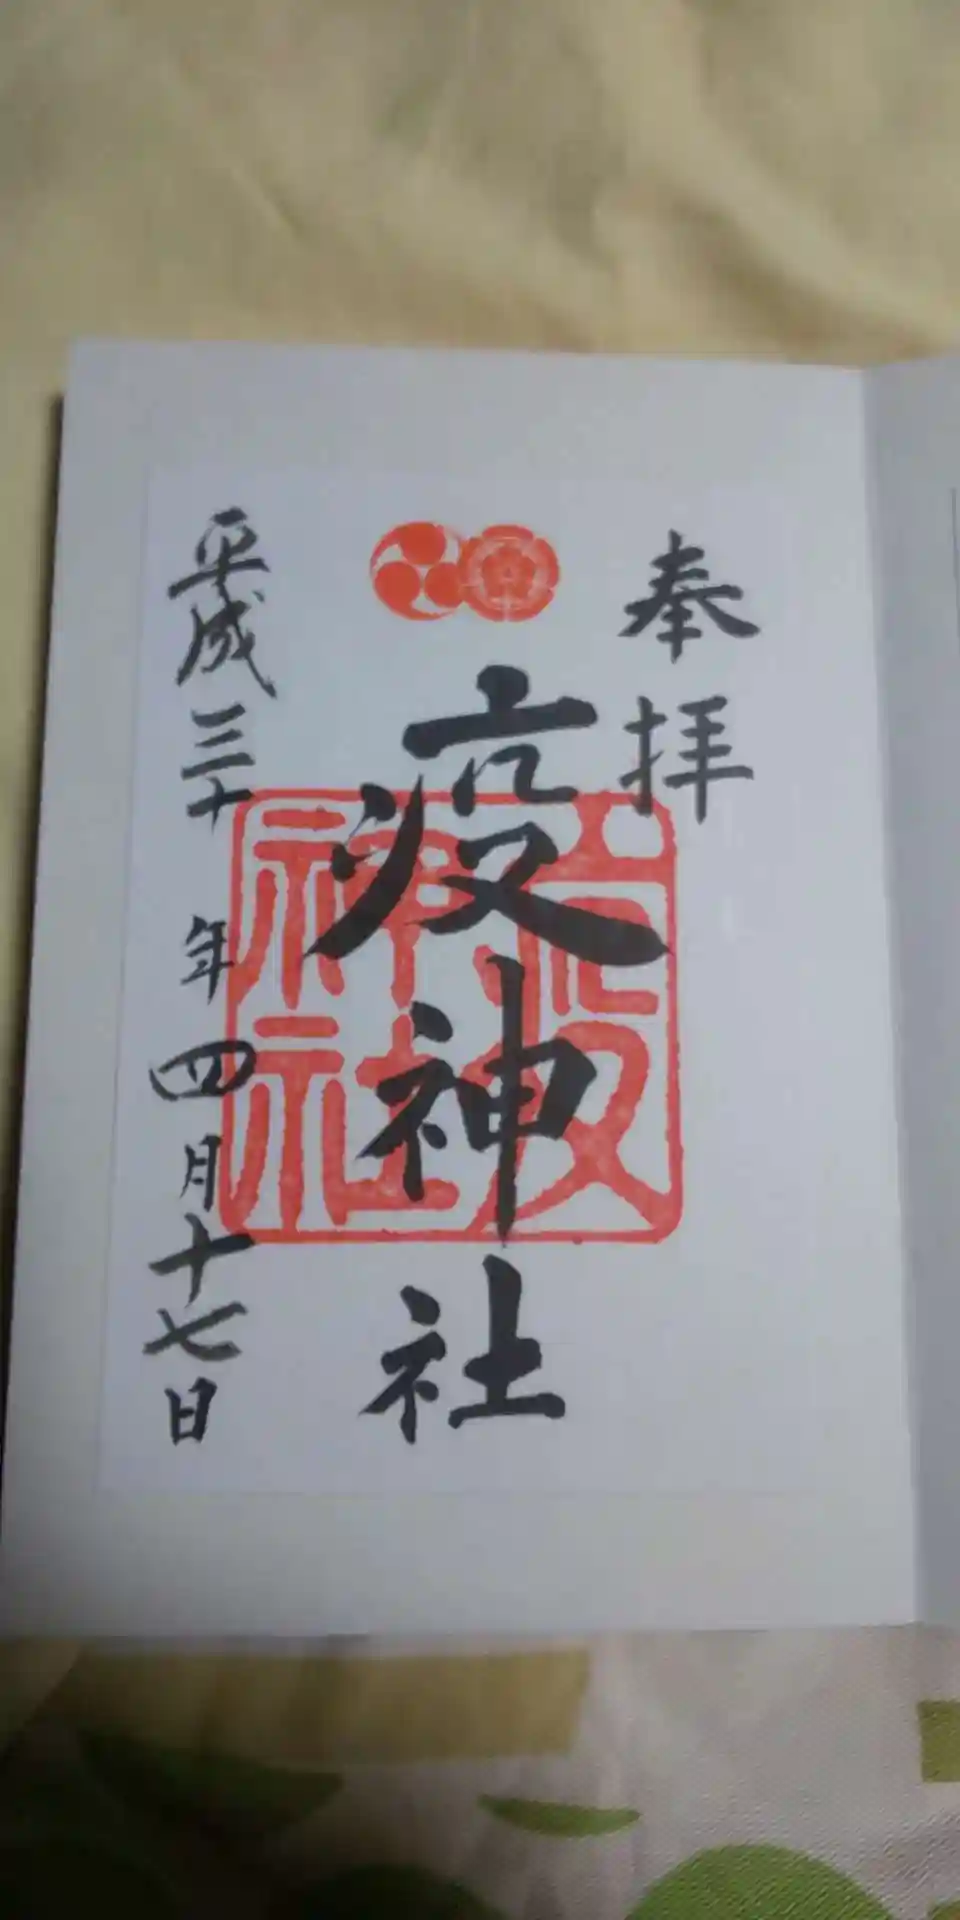 奉拝
疫神社
疫神社
平成三十年四月十七日